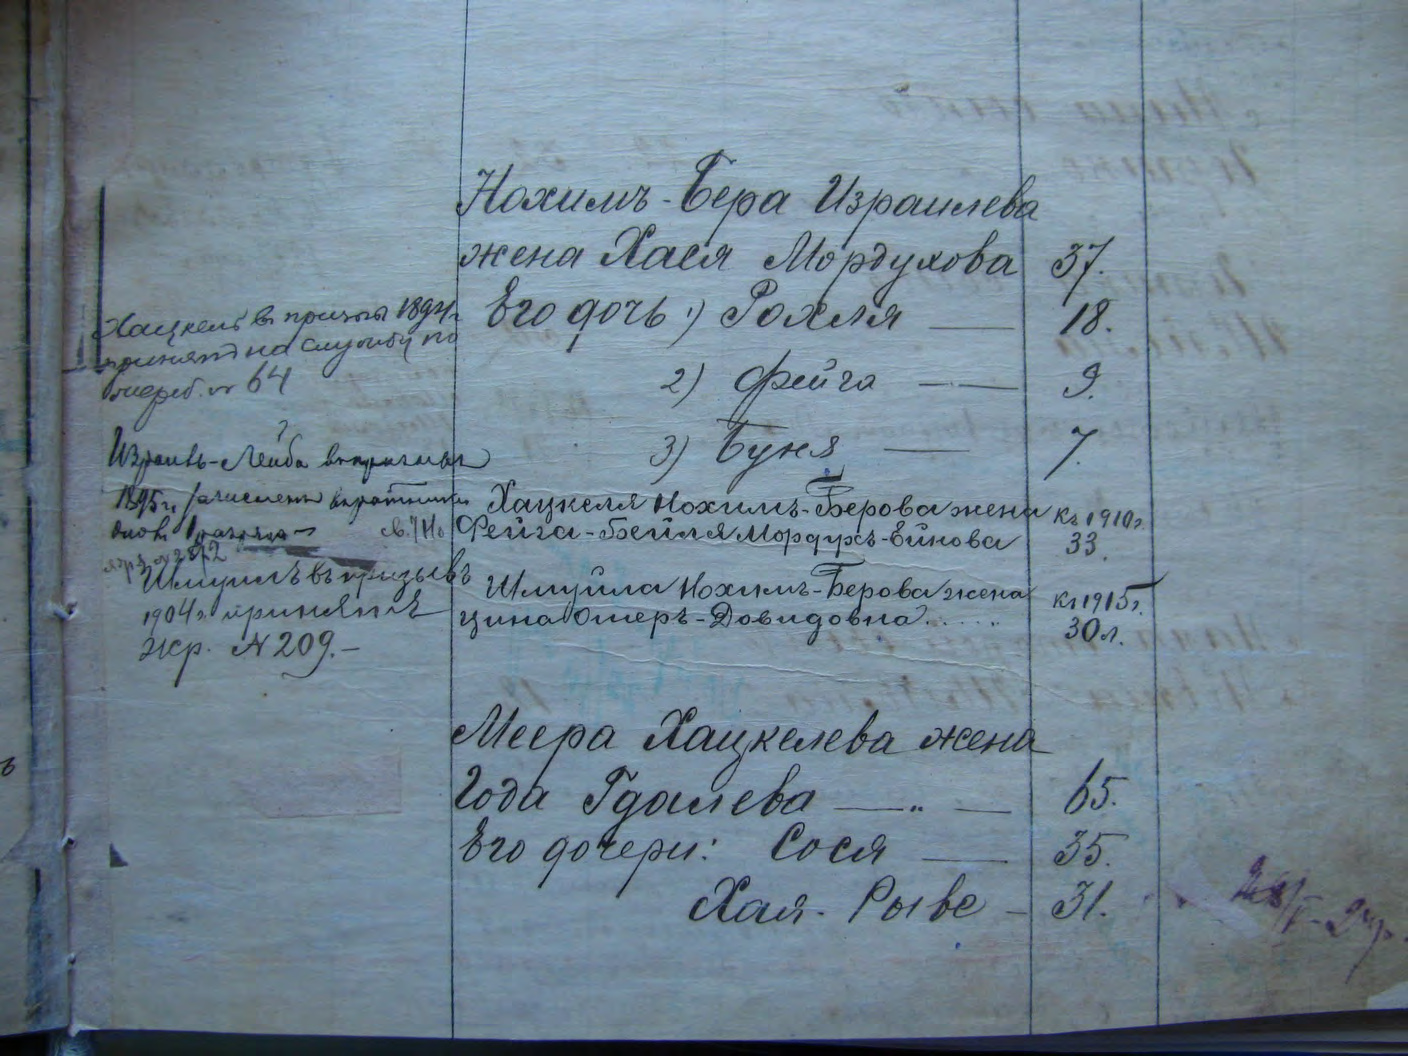 Нохимъ-Бера Израилева
жена Хася Мордухова 37.
Его дочь 1) Рохля — 18.
2) Фейга — 9.
3) Буня — 7.
Хацкеля Нохимъ-Берова жена къ 1910 г.
Фейга-Бейля Мордухъ-Ейнова 33.
Шмуйла Нохимъ-Берова жена къ 1915 г.
Цина Ошеръ-Довидовна..... 30 л.
Меера Хацкелева жена
Года Гдалева — „ — 65.
Его дочери: Сося — 35.
Хая-Рыве — 31.
Хацкель въ призывъ 1894 г.
принятъ на службу по
жереб. № 64
Израиль-Лейба въ призывъ
1895 г. зачисленъ въ ратники
опол. 1 разряда
жр. № 282
Шмуилъ въ призывъ
1904 г. принятъ
жр. № 209.-